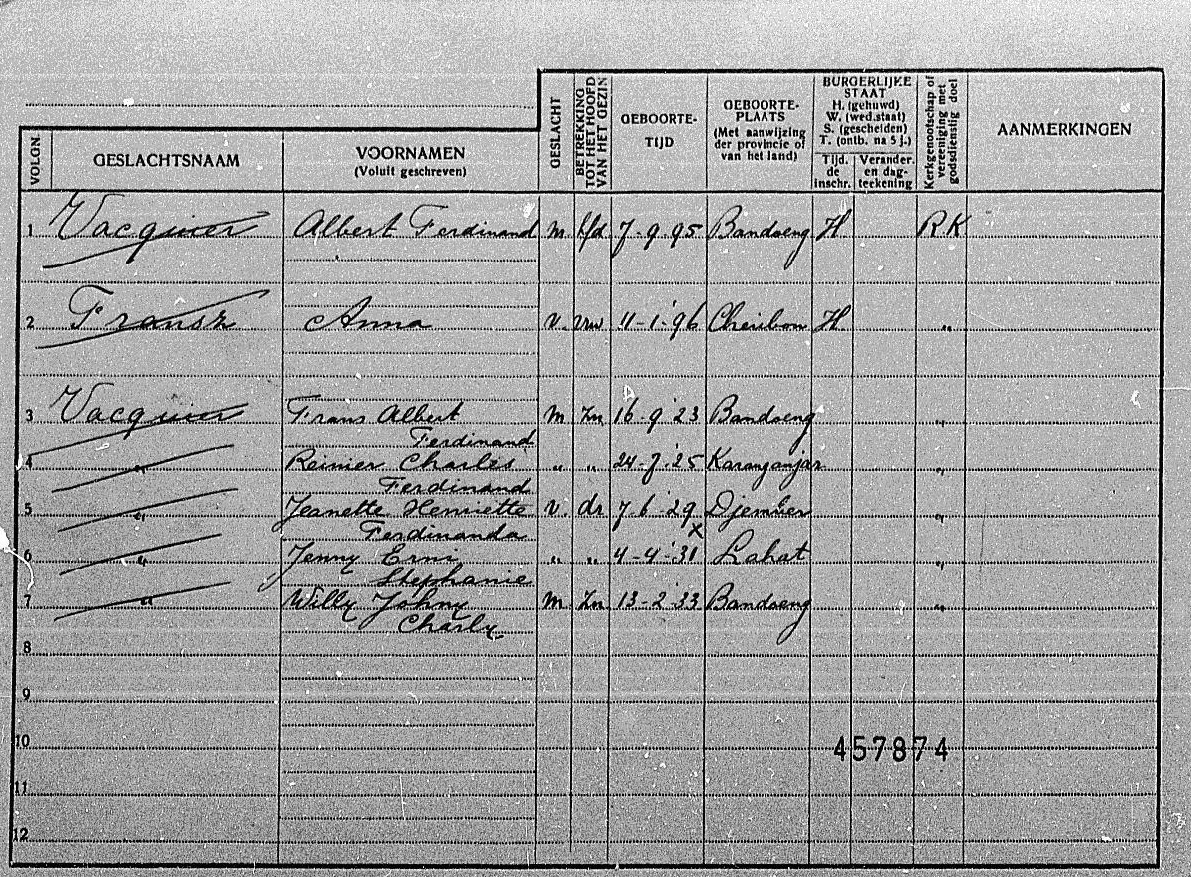 VOLGN. GESLACHTSNAAM VOORNAMEN (Voluit geschreven) GESLACHT BETREKKING TOT HET HOOFD VAN HET GEZIN GEBOORTE-TIJD GEBOORTE-PLAATS (Met aanwijzing der provincie of van het land) BURGERLIJKE STAAT H. (gehuwd) W. (wed.staat) S. (gescheiden) T. (ontb. na 5 j.) Tijd. de inschr. Verander. en dag-teekening Kerkgenootschap of vereeniging met godsdienstig doel AANMERKINGEN
1 Vacquier Albert Ferdinand m hfd 7-9-95 Bandoeng H RK
2 Fransz Anna v. vrw 11-1-'96 Cheribon H „
3 Vacquier Frans Albert m Zn 16-9-'23 Bandoeng „
Ferdinand
4 „ Reinier Charles „ „ 24-7-'25 Karanganjar „
Ferdinand
5 „ Jeanette Henriette v. dr 7-6-'29 Djember „
Ferdinanda x
6 „ Jenny Erni „ „ 4-4-'31 Lahat „
Stephanie
7 „ Willy Johny m Zn 13-2-'33 Bandoeng „
Charly
8
9
10 457874
11
12